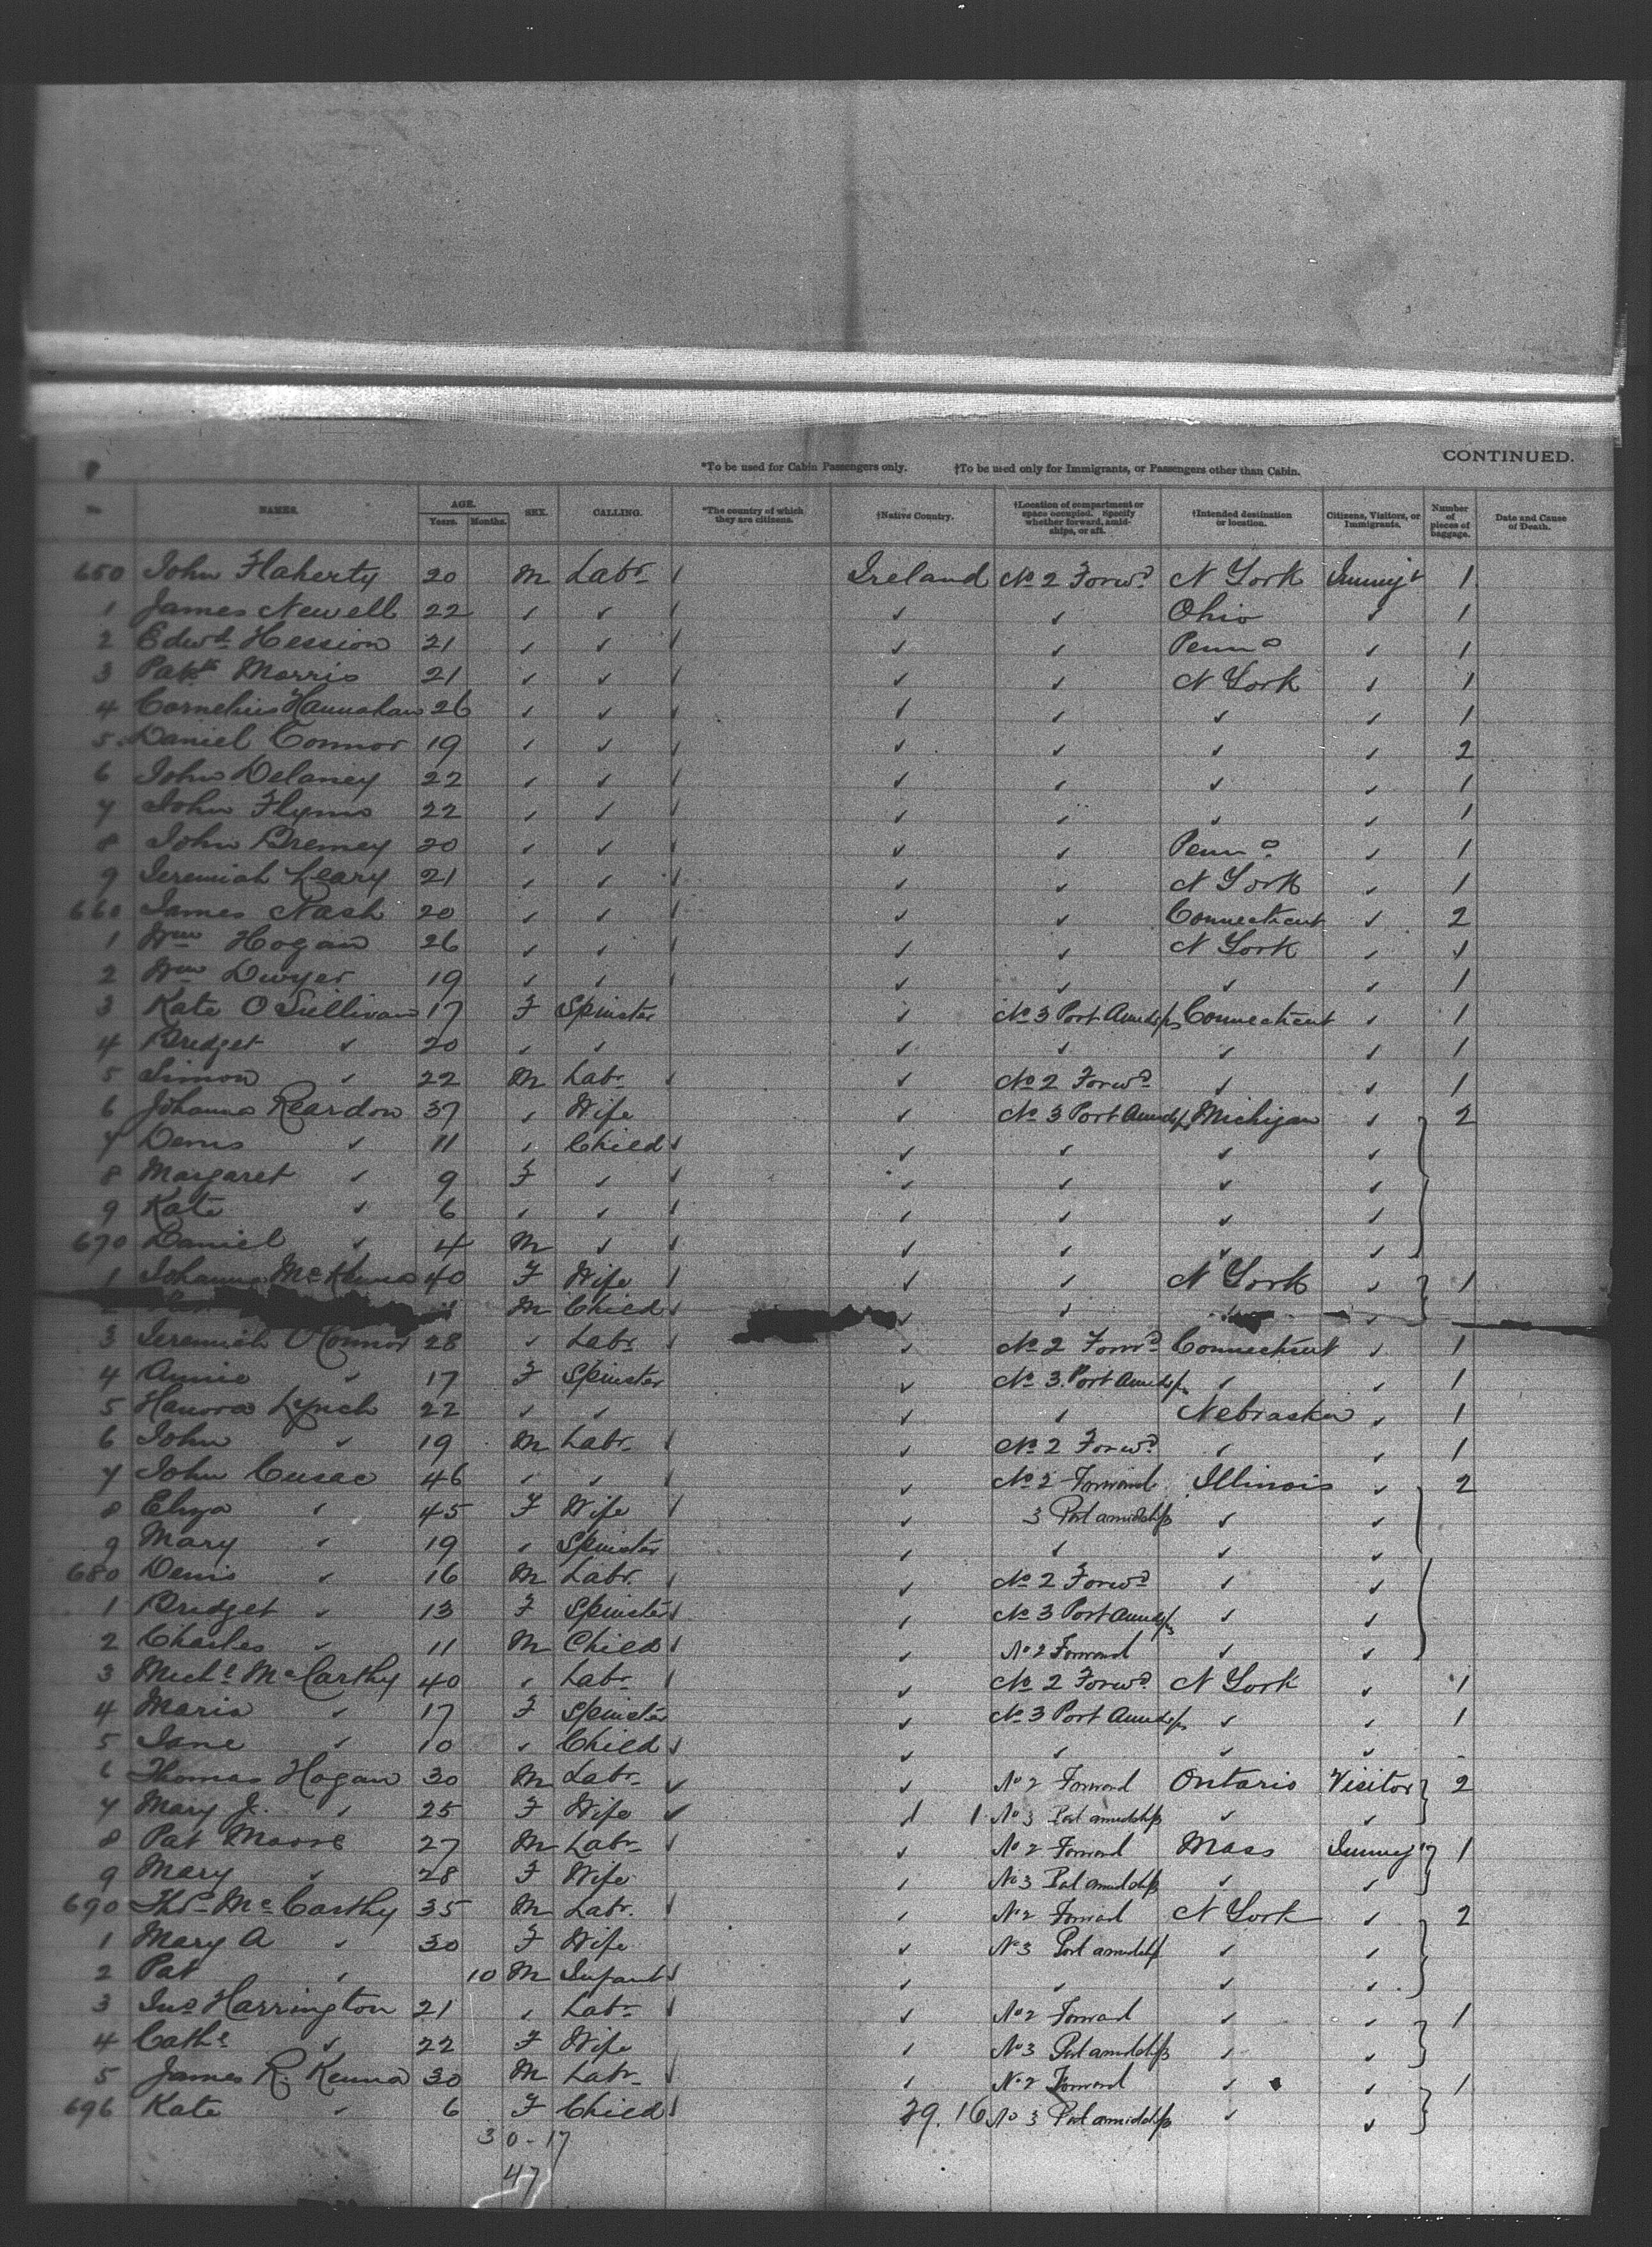 CONTINUED.
*To be used for Cabin Passengers only. †To be used only for Immigrants, or Passengers other than Cabin.
No. NAMES. AGE. Years. Months. SEX. CALLING. *The country of which they are citizens. †Native Country. †Location of compartment or space occupied. Specify whether forward, amidships, or aft. †Intended destination or location. Citizens, Visitors, or Immigrants. Number of pieces of baggage. Date and Cause of Death.
650 John Flaherty 20 M Labr Ireland No 2 Forwd N York Immigt 1
1 James Newell 22 " " " " Ohio " 1
2 Edwd Hession 21 " " " " Penna " 1
3 Patk Morris 21 " " " " N York " 1
4 Cornelius Hannahan 26 " " " " " " 1
5 Daniel Connor 19 " " " " " " 2
6 John Delaney 22 " " " " " " 1
7 John Flynn 22 " " " " " " 1
8 John 20 " " " " Penna " 1
9 Jeremiah Leary 21 " " " " N York " 1
660 James Nash 20 " " " " Connecticut " 2
1 Wm Hogan 26 " " " " N York " 1
2 Wm Dwyer 19 " " " " " " 1
3 Kate O Sullivan 17 F Spinster " No 3 Port Amidsps Connecticut " 1
4 Bridget " 20 " " " " " " 1
5 Simon " 22 M Labr " No 2 Forwd " " 1
6 Johanna Reardon 37 " Wife " No 3 Port Amidsps Michigan " 2
7 Denis " 11 " Child " " " "
8 Margaret " 9 F " " " " "
9 Kate " 6 " " " " " "
670 Daniel " 4 M " " " " "
1 Johanna McKenna 40 F Wife " " N York " 1
2 M Child " " "
3 Jeremiah O Connor 28 " Labr " No 2 Forwd Connecticut " 1
4 Annie " 17 F Spinster " No 3 Port Amidsps " " 1
5 Hanora Lynch 22 " " " " Nebraska " 1
6 John " 19 M Labr " No 2 Forwd " " 1
7 John Cusac 46 " " " No 2 Forward Illinois " 2
8 Eliza " 45 F Wife " 3 Port amidships " "
9 Mary " 19 " Spinster " " " "
680 Denis " 16 M Labr " No 2 Forwd " "
1 Bridget " 13 F Spinster " No 3 Port Amidsps " "
2 Charles " 11 M Child " No 2 Forward " "
3 Michl McCarthy 40 " Labr " No 2 Forwd N York " 1
4 Maria " 17 F Spinster " No 3 Port Amidsps " " 1
5 Jane " 10 " Child " " " " -
6 Thomas Hogan 30 M Labr " No 2 Forward Ontario Visitor 2
7 Mary J. " 25 F Wife 1 1 No 3 Port amidships " "
8 Pat Moore 27 M Labr " No 2 Forward Mass Immigt 1
9 Mary " 28 F Wife " No 3 Port amidships " "
690 Thos McCarthy 35 M Labr " No 2 Forward N York " 2
1 Mary A " 30 F Wife " No 3 Port amidships " "
2 Pat " 10 M Infant " " " "
3 Jno Harrington 21 " Labr " No 2 Forward " " 1
4 Cathe " 22 F Wife " No 3 Port amidships " "
5 James R. Kenna 30 M Labr " No 2 Forward " " 1
696 Kate " 6 F Child 29. 16 No 3 Port amidships " "
30 - 17
47